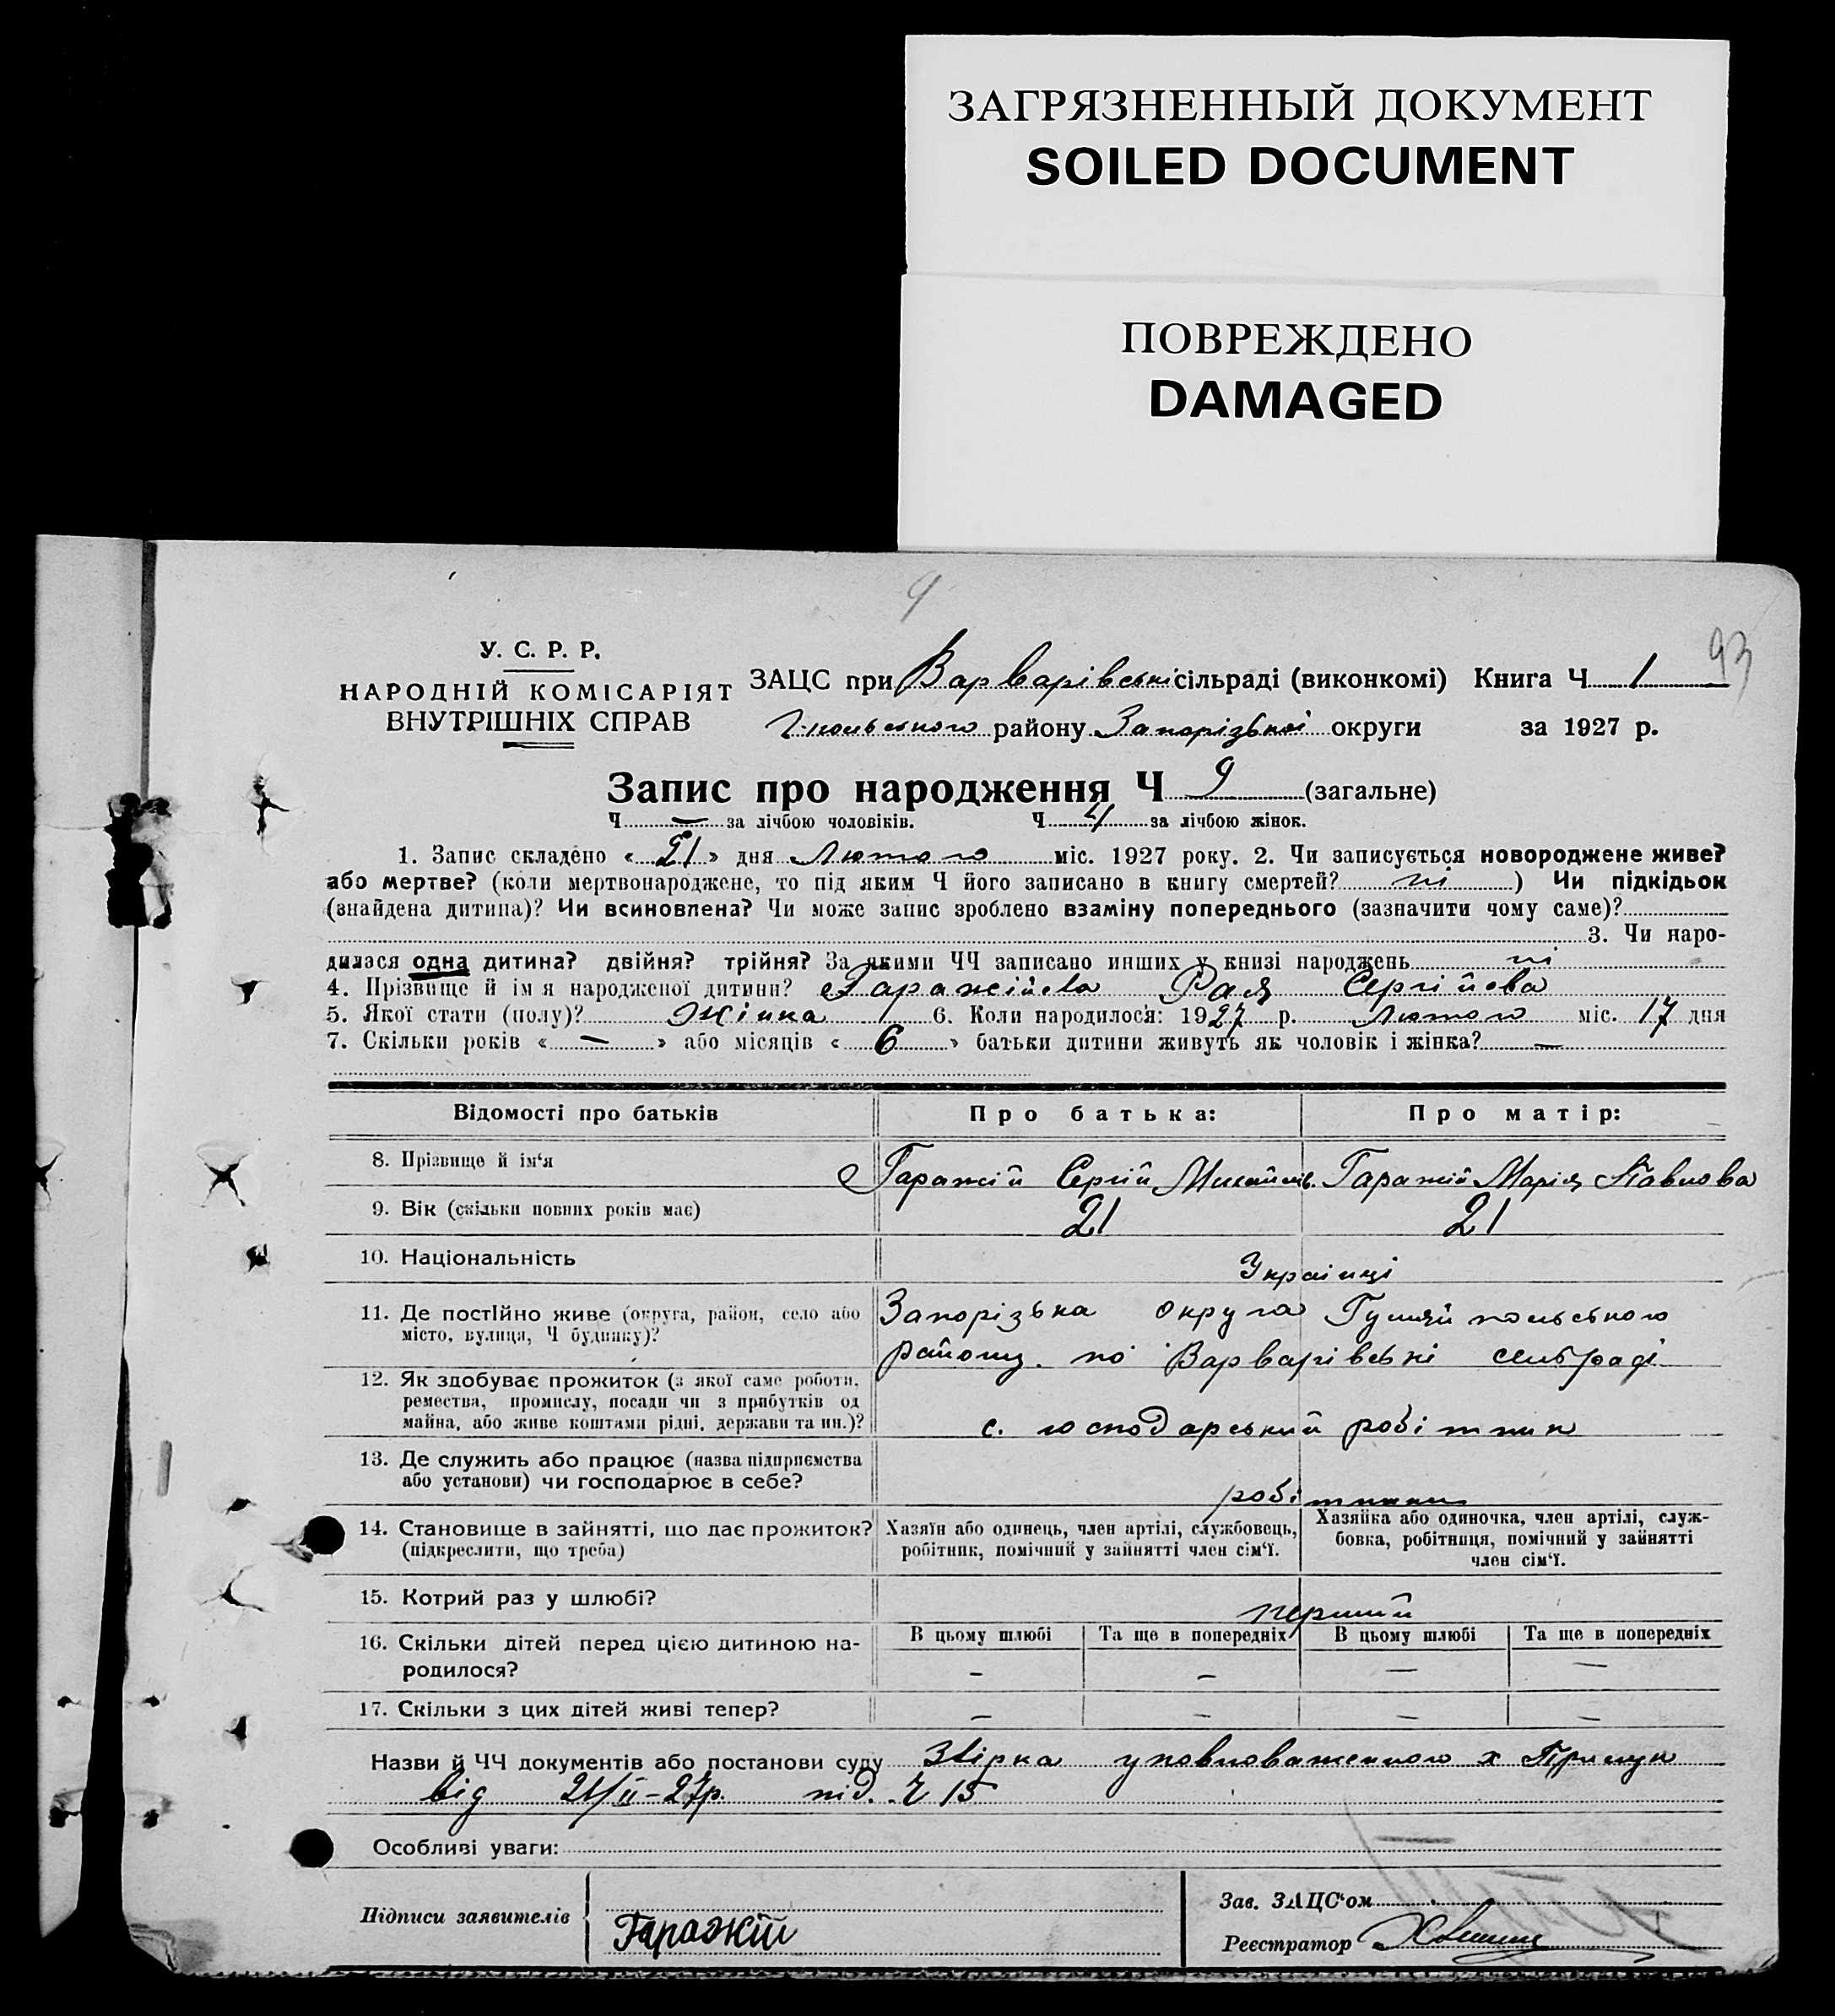 ЗАГРЯЗНЕННЫЙ ДОКУМЕНТ
SOILED DOCUMENT
ПОВРЕЖДЕНО
DAMAGED
9
93
У. С. Р. Р.
НАРОДНІЙ КОМІСАРІЯТ
ВНУТРІШНІХ СПРАВ
ЗАЦС при Варварівські сільраді (виконкомі) Книга Ч 1
району Запорізької округи за 1927 р.
Запис про народження Ч 9 (загальне)
Ч — за лічбою чоловіків. Ч 4 за лічбою жінок.
1. Запис складено « 21 » дня Лютого міс. 1927 року. 2. Чи записується новороджене живе?
або мертве? (коли мертвонароджене, то під яким Ч його записано в книгу смертей? ні ) Чи підкідьок
(знайдена дитина)? Чи всиновлена? Чи може запис зроблено взаміну попереднього (зазначити чому саме)?
3. Чи наро-
дилася одна дитина? двійня? трійня? За якими ЧЧ записано инших у книзі народжень ні
4. Прізвище й ім я народженої дитини? Гаражійева Рая Сергійова
5. Якої стати (полу)? Жінка 6. Коли народилося: 1927 р. Лютого міс. 17 дня
7. Скільки років « — » або місяців « 6 » батьки дитини живуть як чоловік і жінка? —
Відомості про батьків Про батька: Про матір:
8. Прізвище й ім‘я Гаражій Сергій Гаражій Марія Павлова
9. Вік (скільки повних років має) 21 21
10. Національність Українці
11. Де постійно живе (округа, район, село або Запорізька округа Гуляйпольського
місто, вулиця, Ч будинку)? району. по Варварівські сельраді
12. Як здобуває прожиток (з якої саме роботи,
ремества, промислу, посади чи з прибутків од
майна, або живе коштами рідні, держави та ин.)? с. господарський робітник
13. Де служить або працює (назва підприємства
або установи) чи господарює в себе?
14. Становище в зайнятті, що дає прожиток? Хазяїн або одинець, член артілі, службовець, Хазяйка або одиночка, член артілі, служ-
(підкреслити, що треба) робітник, помічний у зайнятті член сім‘ї. бовка, робітниця, помічний у зайнятті
член сім‘ї.
15. Котрий раз у шлюбі? перший
16. Скільки дітей перед цією дитиною на- В цьому шлюбі Та ще в попередніх В цьому шлюбі Та ще в попередніх
родилося? – – — —
17. Скільки з цих дітей живі тепер? — — — —
Назви й ЧЧ документів або постанови суду Звірка уповноваженного х
від 21/II–27р. під. Ч 15
Особливі уваги:
Зав. ЗАЦС‘ом
Підписи заявителів Гаражій
Реєстратор